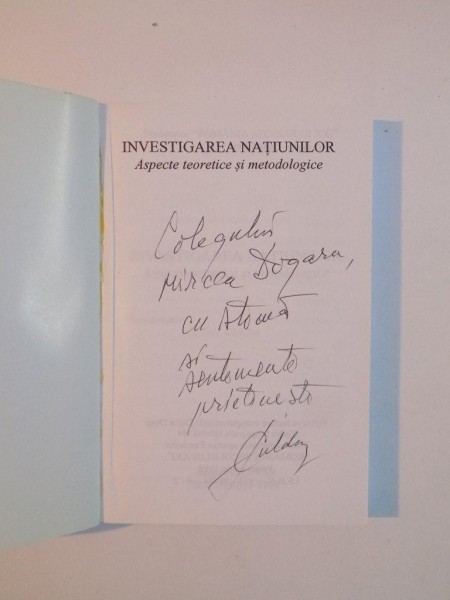 INVESTIGAREA NAȚIUNILOR
Aspecte teoretice și metodologice
Colegului
Mircea Dogaru,
cu stimă
și
sentimente
prietenești